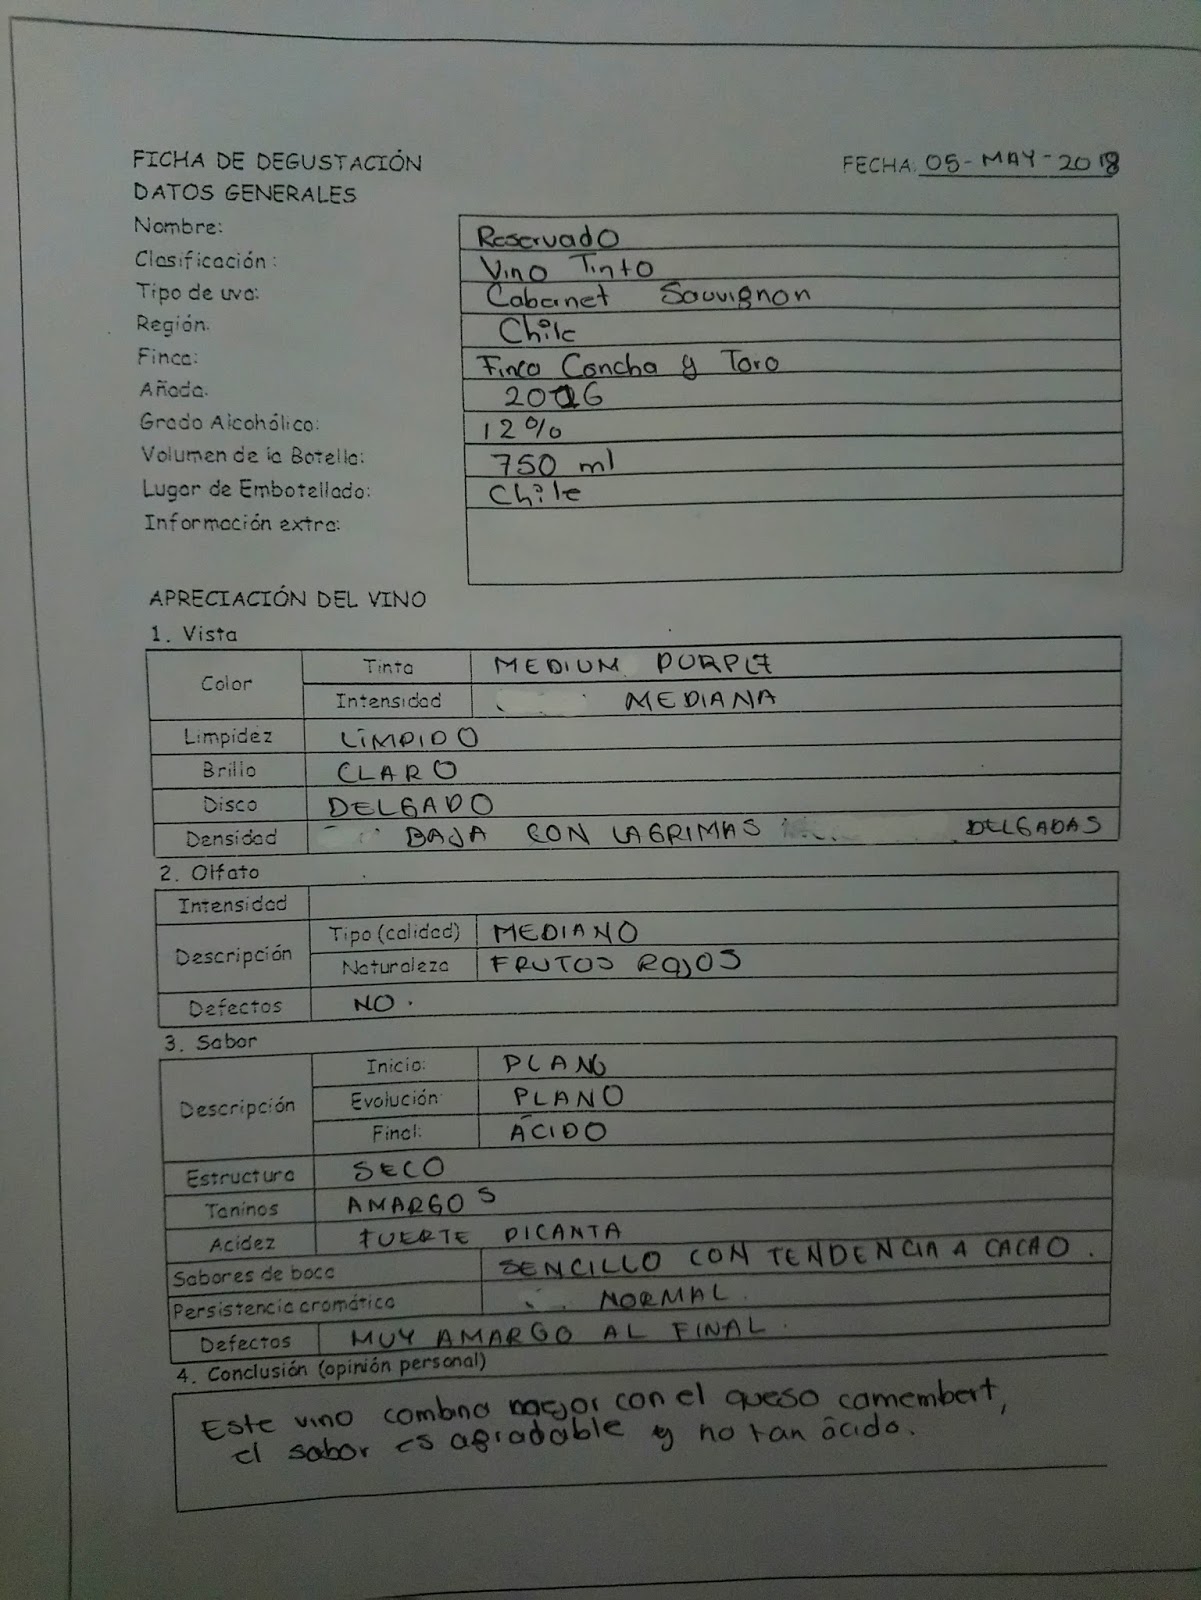 FICHA DE DEGUSTACIÓN FECHA: 05-MAY-2018
DATOS GENERALES
Nombre: Reservado
Clasificación: Vino Tinto
Tipo de uva: Cabernet Sauvignon
Región: Chile
Finca: Finca Concha y Toro
Añada: 2016
Grado Alcohólico: 12%
Volumen de la Botella: 750 ml
Lugar de Embotellado: Chile
Información extra:
APRECIACIÓN DEL VINO
1. Vista
Color Tinta MEDIUM PURPLE
Intensidad MEDIANA
Limpidez LÍMPIDO
Brillo CLARO
Disco DELGADO
Densidad BAJA CON LAGRIMAS DELGADAS
2. Olfato
Intensidad
Descripción Tipo (calidad) MEDIANO
Naturaleza FRUTOS ROJOS
Defectos NO.
3. Sabor
Descripción Inicio: PLANO
Evolución: PLANO
Final: ÁCIDO
Estructura SECO
Taninos AMARGOS
Acidez FUERTE PICANTA
Sabores de boca SENCILLO CON TENDENCIA A CACAO.
Persistencia aromática NORMAL.
Defectos MUY AMARGO AL FINAL.
4. Conclusión (opinión personal)
Este vino combina mejor con el queso camembert,
el sabor es agradable y no tan ácido.